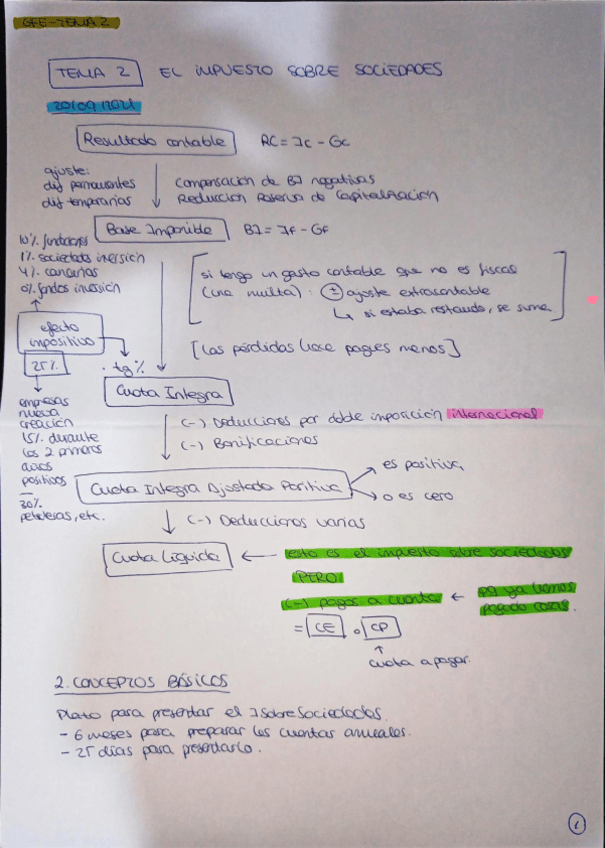 GFE - TEMA 2
TEMA 2 EL IMPUESTO SOBRE SOCIEDADES
20/09/2021
Resultado contable RC = Ic - Gc
ajuste:
dif permanentes
dif temporarias
Compensación de BI negativas
Reducción Reserva de Capitalización
Base Imponible BI = If - Gf
10% fundaciones
1% sociedades inversión
4% canarias
0% fondos inversión
si tengo un gasto contable que no es fiscal
(una multa): ± ajuste extracontable
↳ si estaba restando, se suma
efecto
impositivo
25%
[Las pérdidas hace pagues menos]
· tg%
Cuota Integra
empresas
nueva
creación
15% durante
los 2 primeros
años
positivos
30%
petroleras, etc.
(-) Deducciones por doble imposición internacional
(-) Bonificaciones
Cuota Integra Ajustada Positiva
es positiva,
o es cero
(-) Deducciones varias
Cuota Líquida ← esto es el impuesto sobre sociedades
PERO
(-) pagos a cuenta ← pq ya hemos
pagado cosas.
= CE o CP
↑
cuota a pagar.
2. CONCEPTOS BÁSICOS
Plazo para presentar el I sobre Sociedades.
- 6 meses para preparar las cuentas anuales.
- 25 días para presentarlo.
1